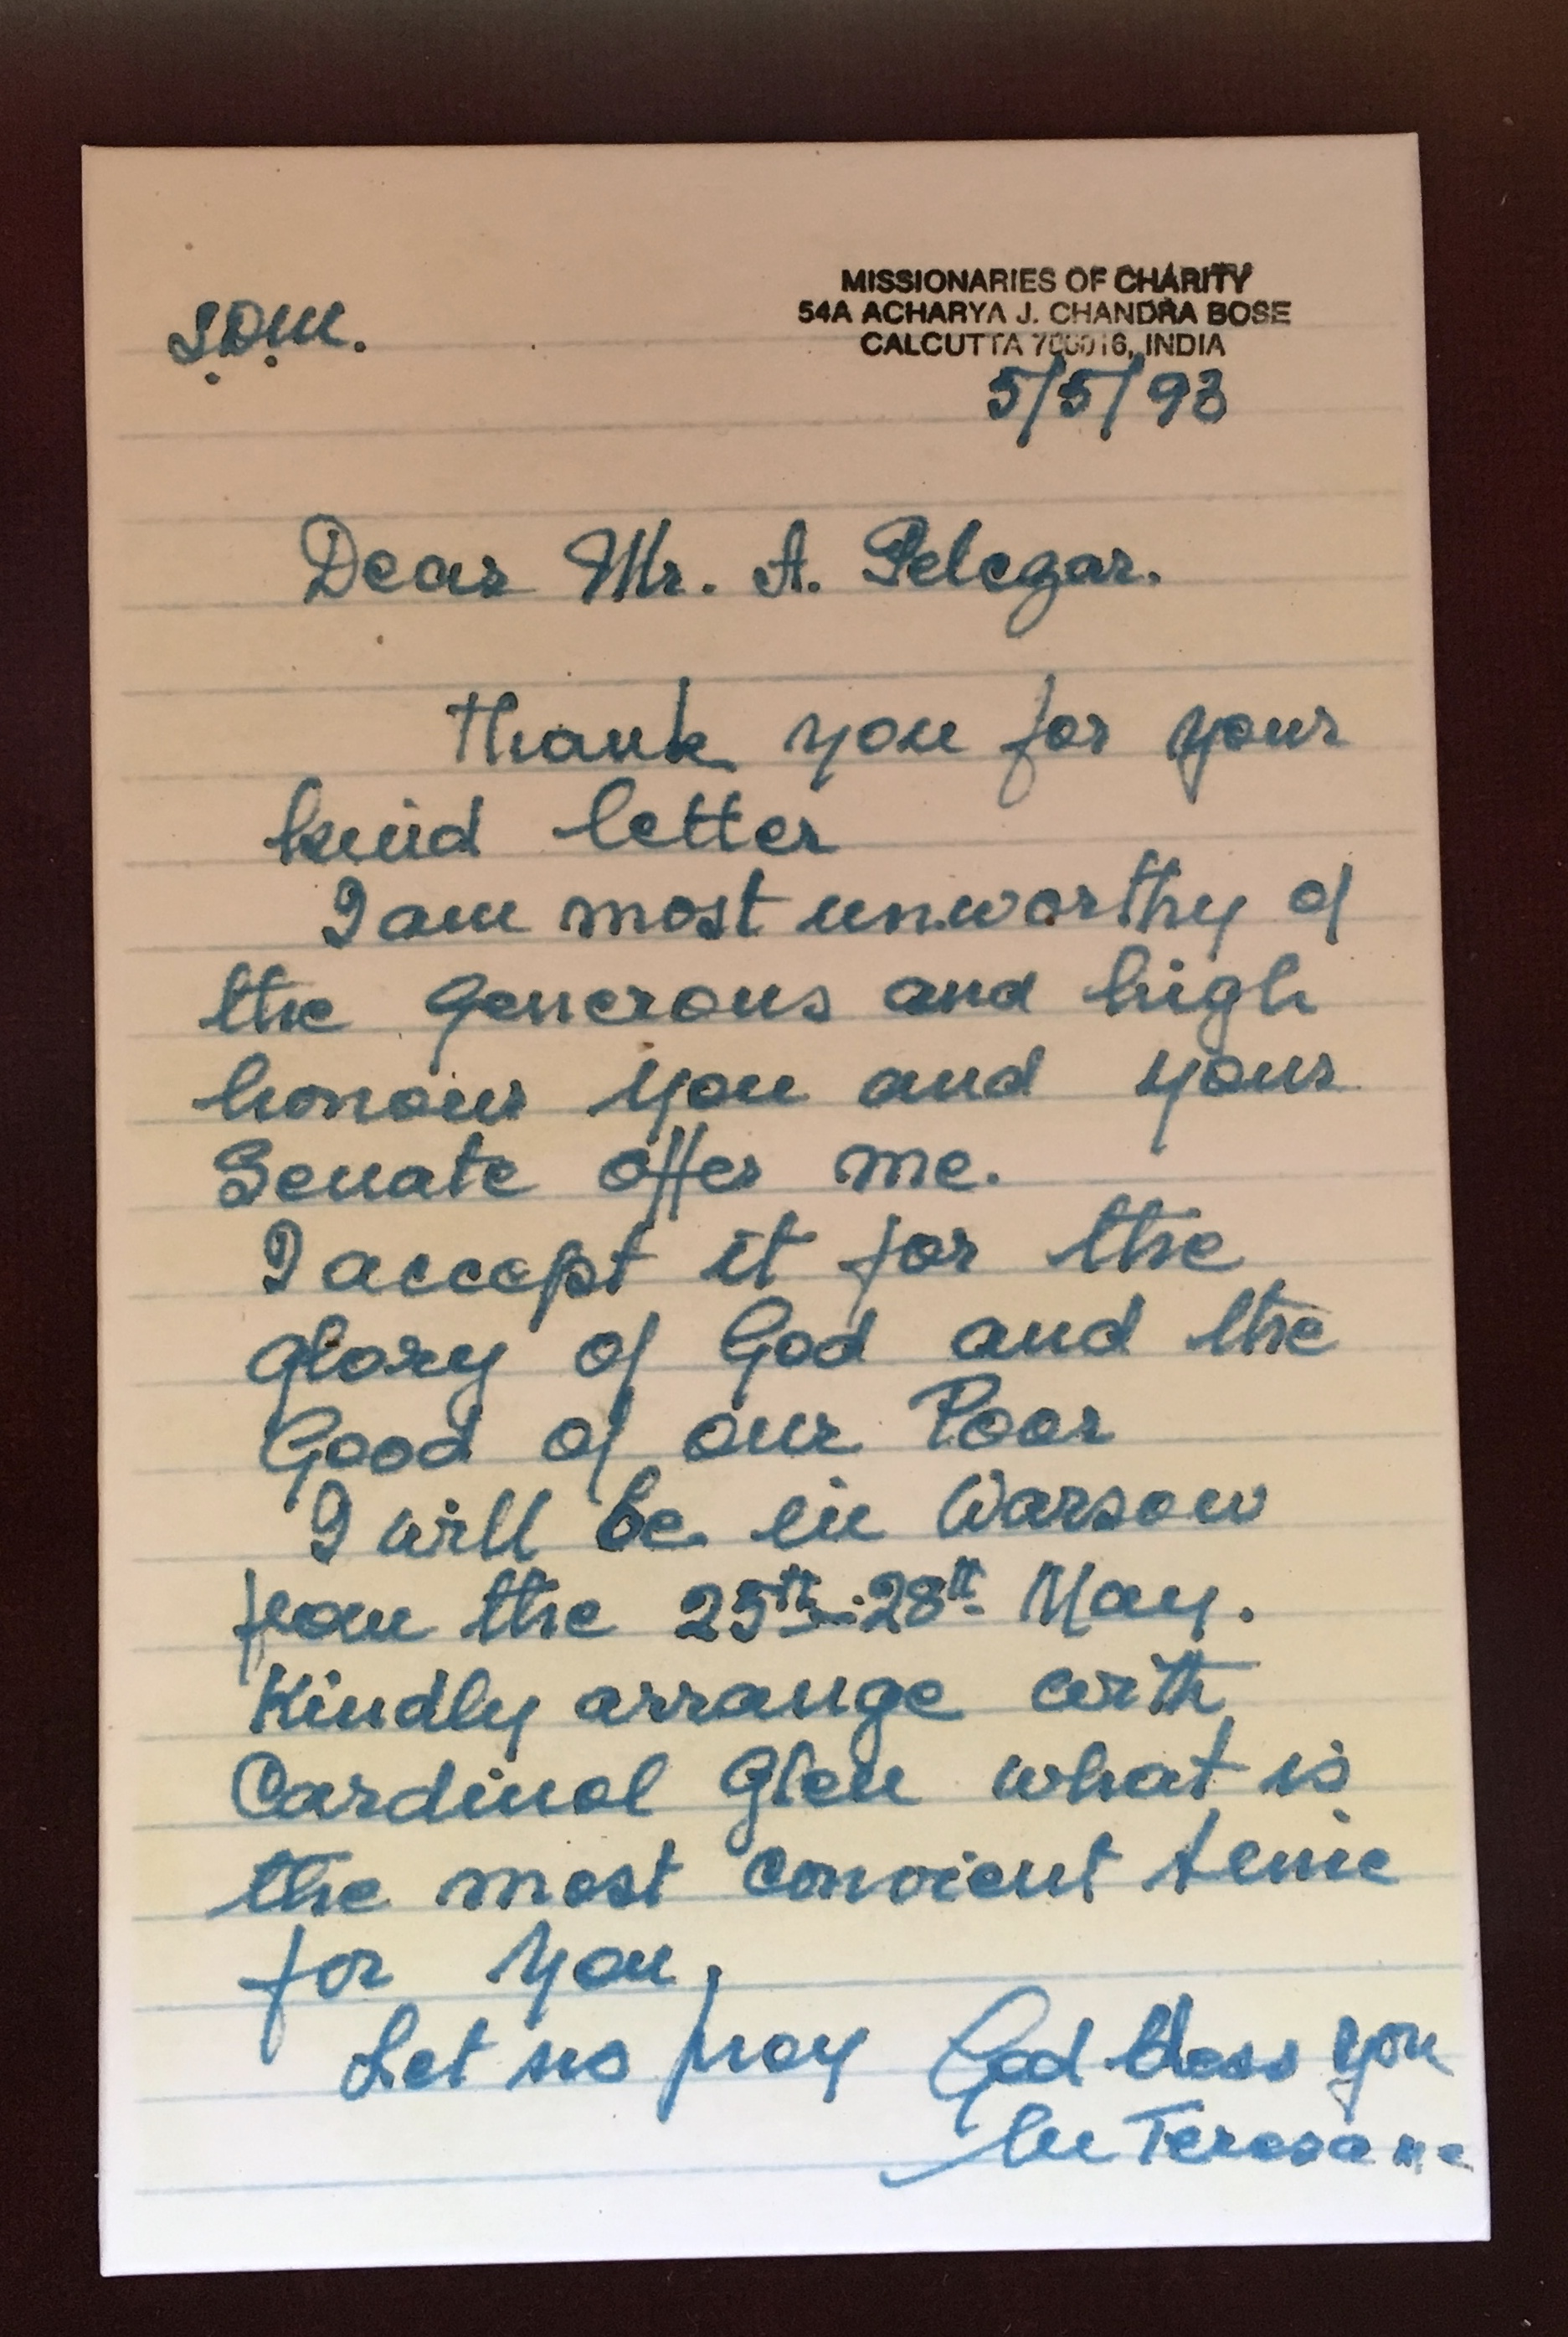 L.D.M.
MISSIONARIES OF CHARITY
54A ACHARYA J. CHANDRA BOSE
CALCUTTA 700016, INDIA
5/5/93
Dear Mr. A. Pelczar.
Thank you for your
kind letter
I am most unworthy of
the generous and high
honour you and your
Senate offer me.
I accept it for the
glory of God and the
Good of our Poor
I will be in Warsow
from the 25th-28th May.
Kindly arrange with
Cardinal Glen what is
the most convient time
for you.
Let us pray God bless you
M Teresa mc